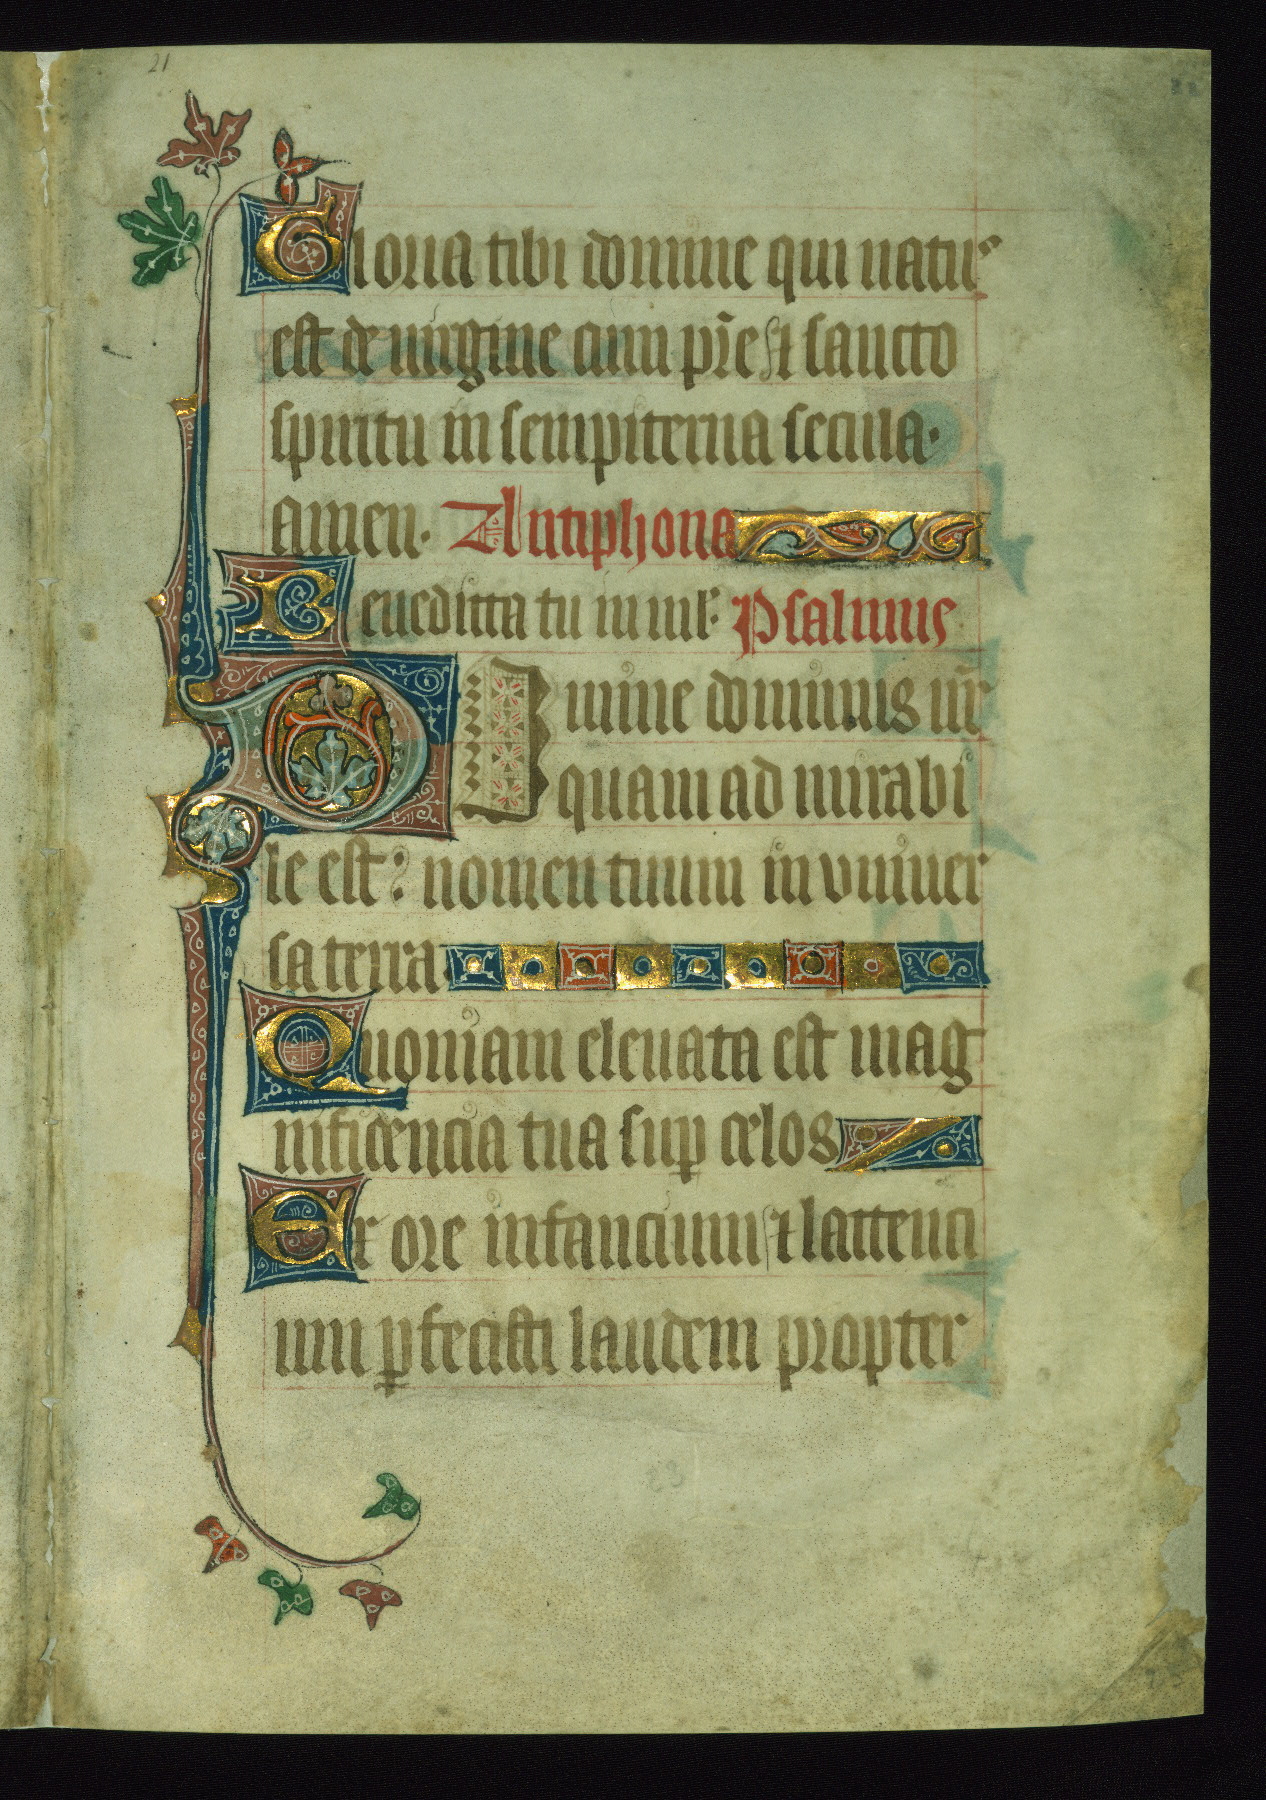 21
Gloria tibi domine qui natus
est de uirgine cum pr̄e ⁊ sancto
spiritu in sempiterna secula·
amen. Antiphona
Benedicta tu in mlꝰ Psalmus
Domine dominus nr̄
quam admirabi
le est: nomen tuum in vniuer
sa terra
Quoniam eleuata est mag
nificencia tua suꝑ celos
Ex ore infancium ⁊ lattenci
um ꝑfecisti laudem propter